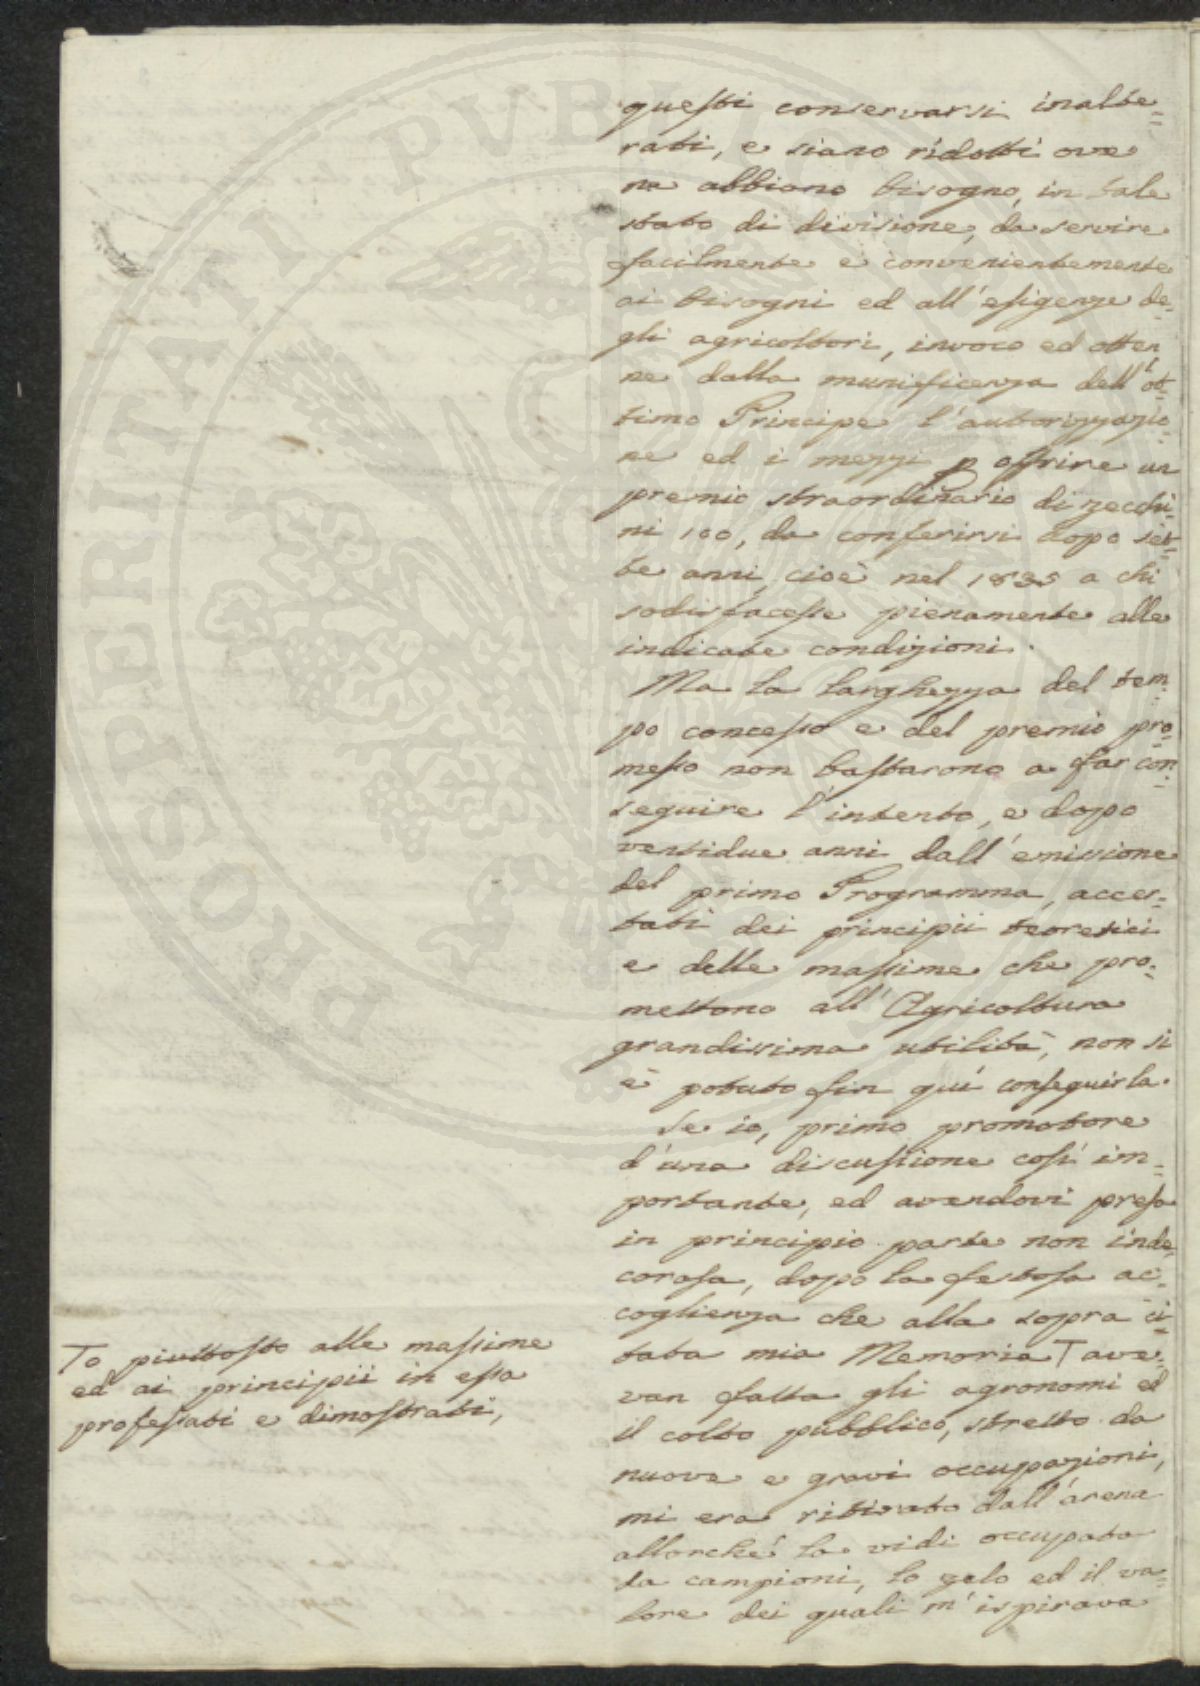 questi conservarsi inalte=
rati, e siano ridotti ove
ne abbiano bisogno, in tale
stato di divisione, da servire
facilmente e convenientemente
ai bisogni ed all'esigenze de=
gli agricoltori, invocò ed otten
ne dalla munificenza dell'ot=
timo Principe l'autorizzazio=
ne ed i mezzi p offrire un
premio straordinario di zecchi=
ni 100, da conferirsi dopo set=
te anni, cioè nel 1835 a chi
sodisfacesse pienamente alle
indicate condizioni.
Ma la larghezza del tem=
po concesso e del premio pro=
messo non bastarono a far con=
seguire l'intento, e dopo
ventidue anni dall'emissione
del primo Programma, accer=
tati dei principii teoretici
e delle massime che pro=
mettono all'Agricoltura
grandissima utilità, non si
è potuto fin quì conseguirla.
Se io, primo promotore
d'una discussione così im=
portante, ed avendovi preso
in principio parte non inde=
corosa, dopo la festosa ac=
coglienza che alla sopra ci=
tata mia Memoria T ave=
van fatta gli agronomi ed
il colto pubblico, stretto da
nuove e gravi occupazioni,
mi era ritirato dall'arena
allorché la vidi occupata
da campioni, lo zelo ed il va=
lore dei quali m'ispirava
To piuttosto alle massime
ed ai principii in essa
professati e dimostrati,
PROSPERITATI PVBLICAE